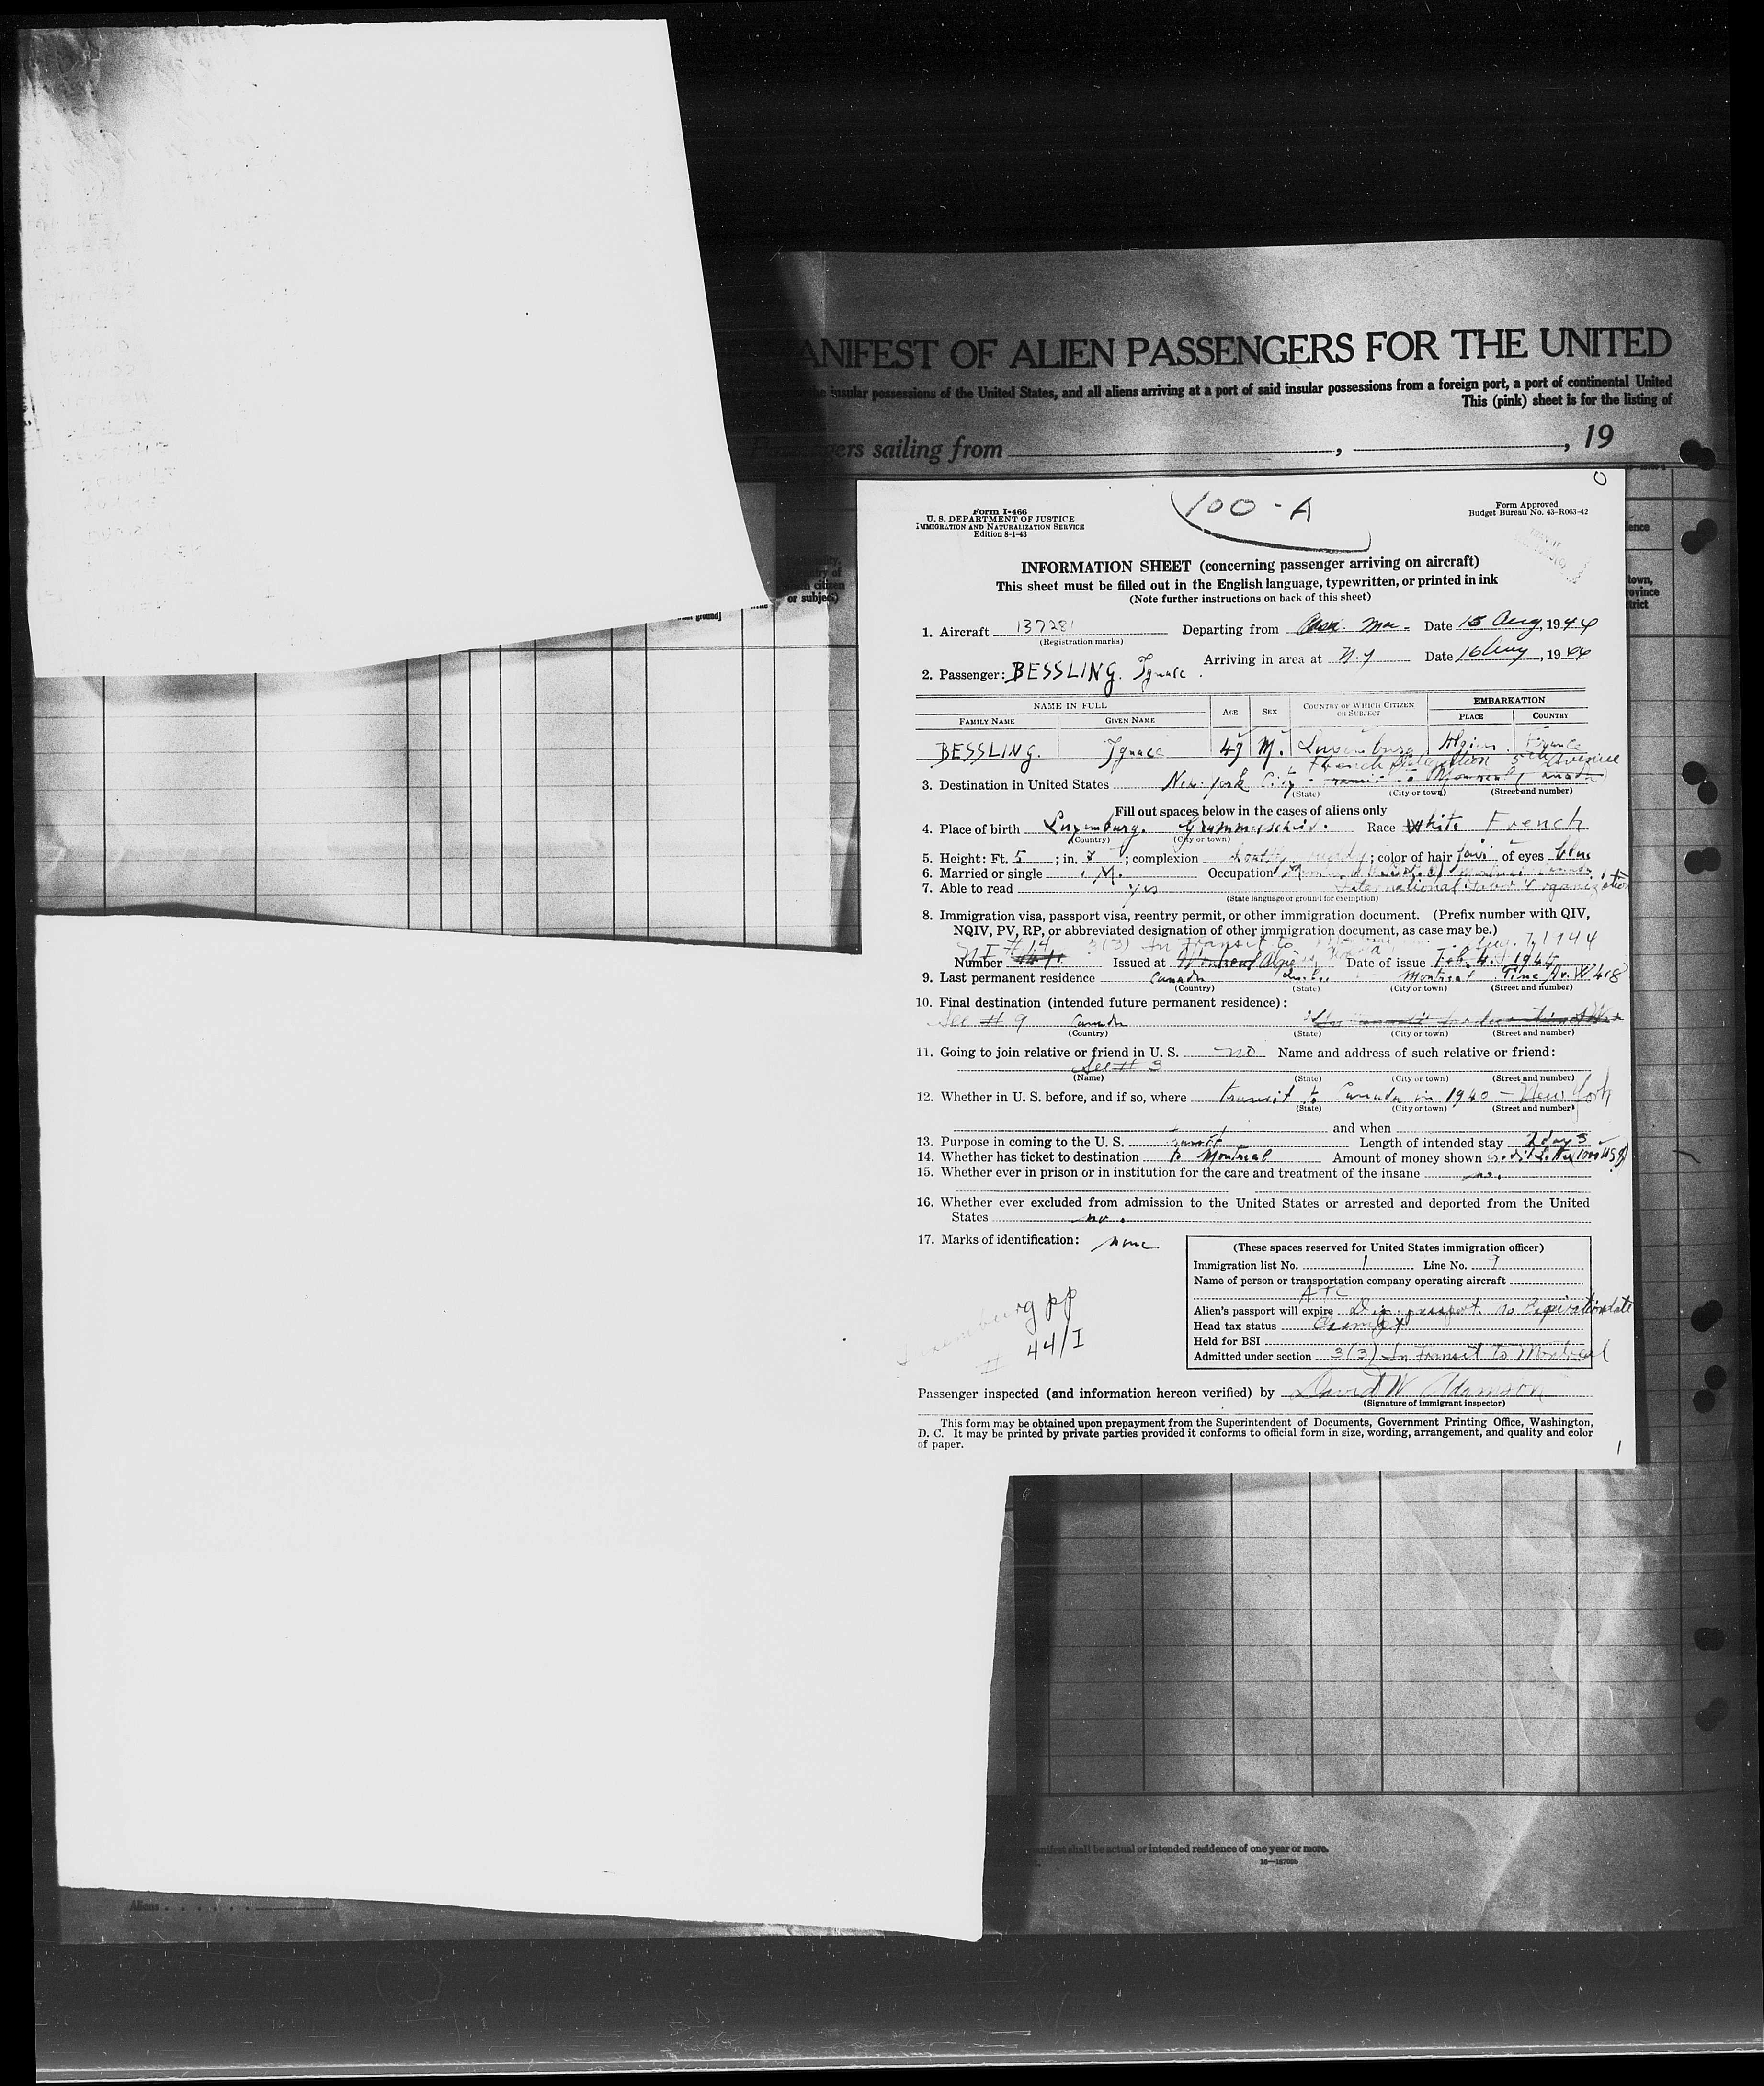 ANIFEST OF ALIEN PASSENGERS FOR THE UNITED
the insular possessions of the United States, and all aliens arriving at a port of said insular possessions from a foreign port, a port of continental United
This (pink) sheet is for the listing of
Passengers sailing from , , 19
or subject)
100-A
Form I-466
U. S. DEPARTMENT OF JUSTICE
IMMIGRATION AND NATURALIZATION SERVICE
Edition 8-1-43
Form Approved
Budget Bureau No. 43-R063-42
INFORMATION SHEET (concerning passenger arriving on aircraft)
This sheet must be filled out in the English language, typewritten, or printed in ink
(Note further instructions on back of this sheet)
1. Aircraft 137281 Departing from Date 15 Aug, 1944
(Registration marks)
Arriving in area at N.Y Date 16 Aug, 1944
2. Passenger: BESSLING. Ignace.
NAME IN FULL AGE SEX COUNTRY OF WHICH CITIZEN OR SUBJECT EMBARKATION
FAMILY NAME GIVEN NAME PLACE COUNTRY
BESSLING. Ignace 49 M. Luxemburg Algiers France
French Delegation 5th Avenue
3. Destination in United States New York City
(State) (City or town) (Street and number)
Fill out spaces below in the cases of aliens only
4. Place of birth Luxemburg. Race White French
(Country) (City or town)
5. Height: Ft. 5; in. 7; complexion ; color of hair fair of eyes blue
6. Married or single M. Occupation
7. Able to read yes International Labor Organization
(State language or ground for exemption)
8. Immigration visa, passport visa, reentry permit, or other immigration document. (Prefix number with QIV,
NQIV, PV, RP, or abbreviated designation of other immigration document, as case may be.)
3(3) In transit to Aug. 7, 1944
Number Issued at Montreal Date of issue Feb. 4. 1944
9. Last permanent residence Canada Montreal Pine Av. W 418
(Country) (State) (City or town) (Street and number)
10. Final destination (intended future permanent residence):
See # 9 Canada
(Country) (State) (City or town) (Street and number)
11. Going to join relative or friend in U. S. no Name and address of such relative or friend:
See # 3
(Name) (State) (City or town) (Street and number)
12. Whether in U. S. before, and if so, where transit to Canada in 1940 - New York
(State) (City or town) (Street and number)
and when
13. Purpose in coming to the U. S. transit Length of intended stay 2 days
14. Whether has ticket to destination to Montreal Amount of money shown
15. Whether ever in prison or in institution for the care and treatment of the insane no.
16. Whether ever excluded from admission to the United States or arrested and deported from the United
States no.
17. Marks of identification: none
(These spaces reserved for United States immigration officer)
Immigration list No. 1 Line No. 9
Name of person or transportation company operating aircraft
ATC
Alien's passport will expire Dip. passport. no Expiration date
Head tax status Exempt
Held for BSI
Admitted under section 3(3) In transit to Montreal
Luxemburg pp
# 44/I
Passenger inspected (and information hereon verified) by David W Adamson
(Signature of immigrant inspector)
This form may be obtained upon prepayment from the Superintendent of Documents, Government Printing Office, Washington,
D. C. It may be printed by private parties provided it conforms to official form in size, wording, arrangement, and quality and color
of paper.
manifest shall be actual or intended residence of one year or more.
Aliens